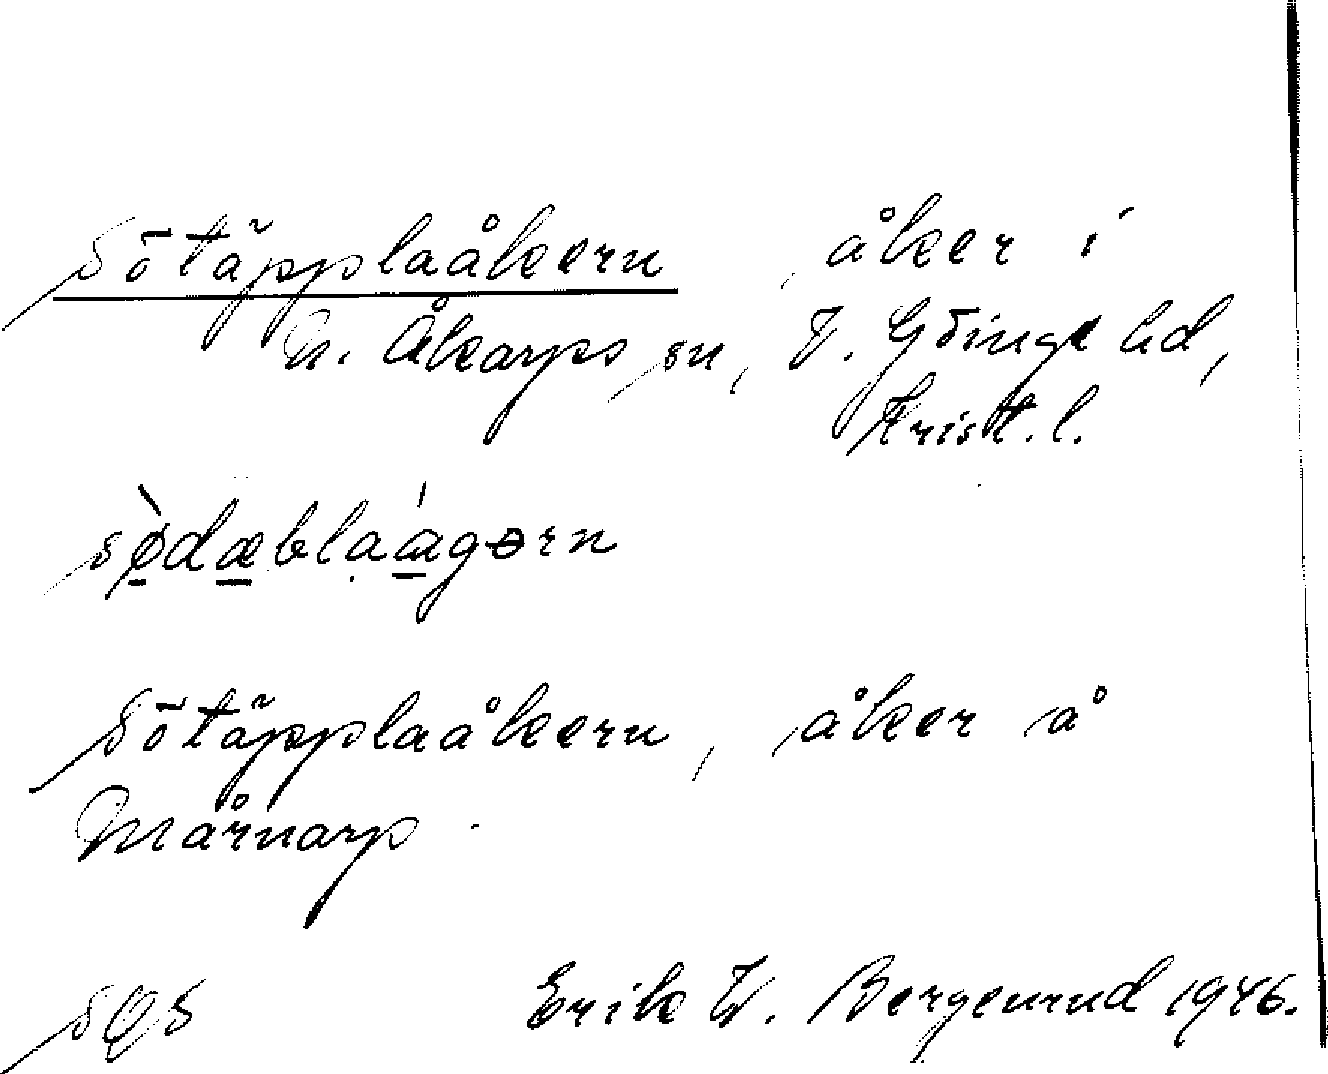 Sötäpplaåkern, åker i
N. Åkarps sn, V. Göinge hd,
Krist. l.
sø̀dæblaágərn
Sötäpplaåkern, åker å
Mårnarp.
Erik W. Bergenrud 1946.